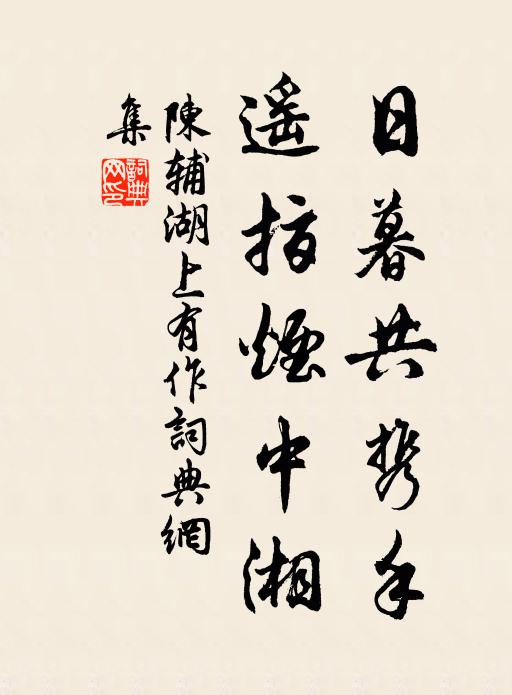 日暮共携手
遥指煙中湘
陳辅湖上有作詞典網
集
詞典网印